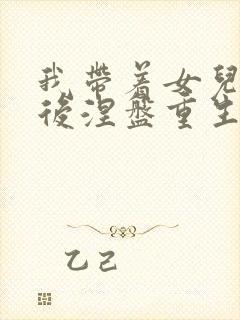 我带着女兒
後涅盤重生
乙己